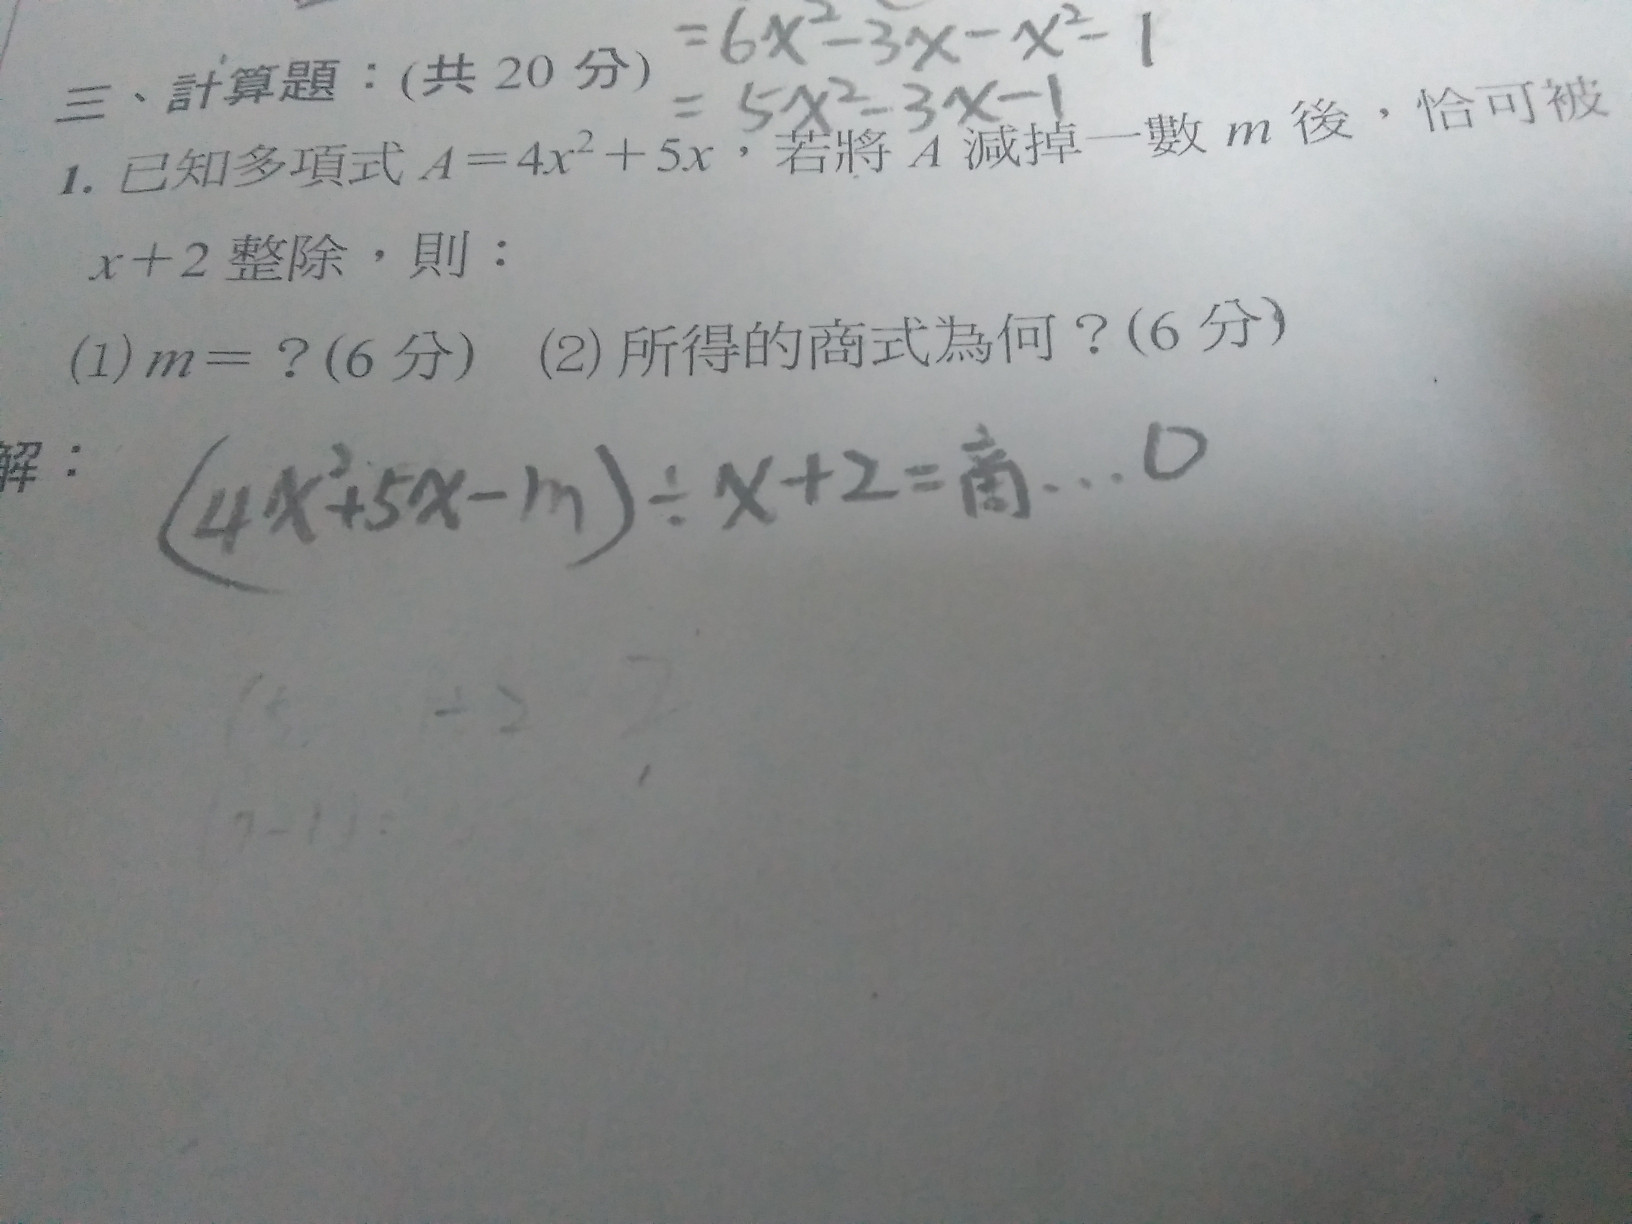 =6x²-3x-x²-1
三、計算題：(共 20 分)
=5x²-3x-1
1. 已知多項式 A＝4x²＋5x，若將 A 減掉一數 m 後，恰可被
x＋2 整除，則：
(1) m＝？(6 分) (2) 所得的商式為何？(6 分)
解：
(4x²+5x-m)÷x+2=商...0